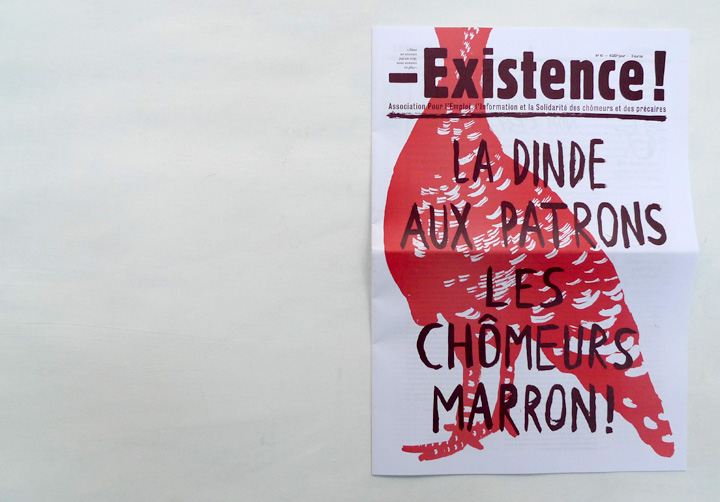 N° 41 —
–Existence!
Association Pour l'Emploi, l'Information et la Solidarité des chômeurs et des précaires
LA DINDE
AUX PATRONS
LES
CHÔMEURS
MARRON!